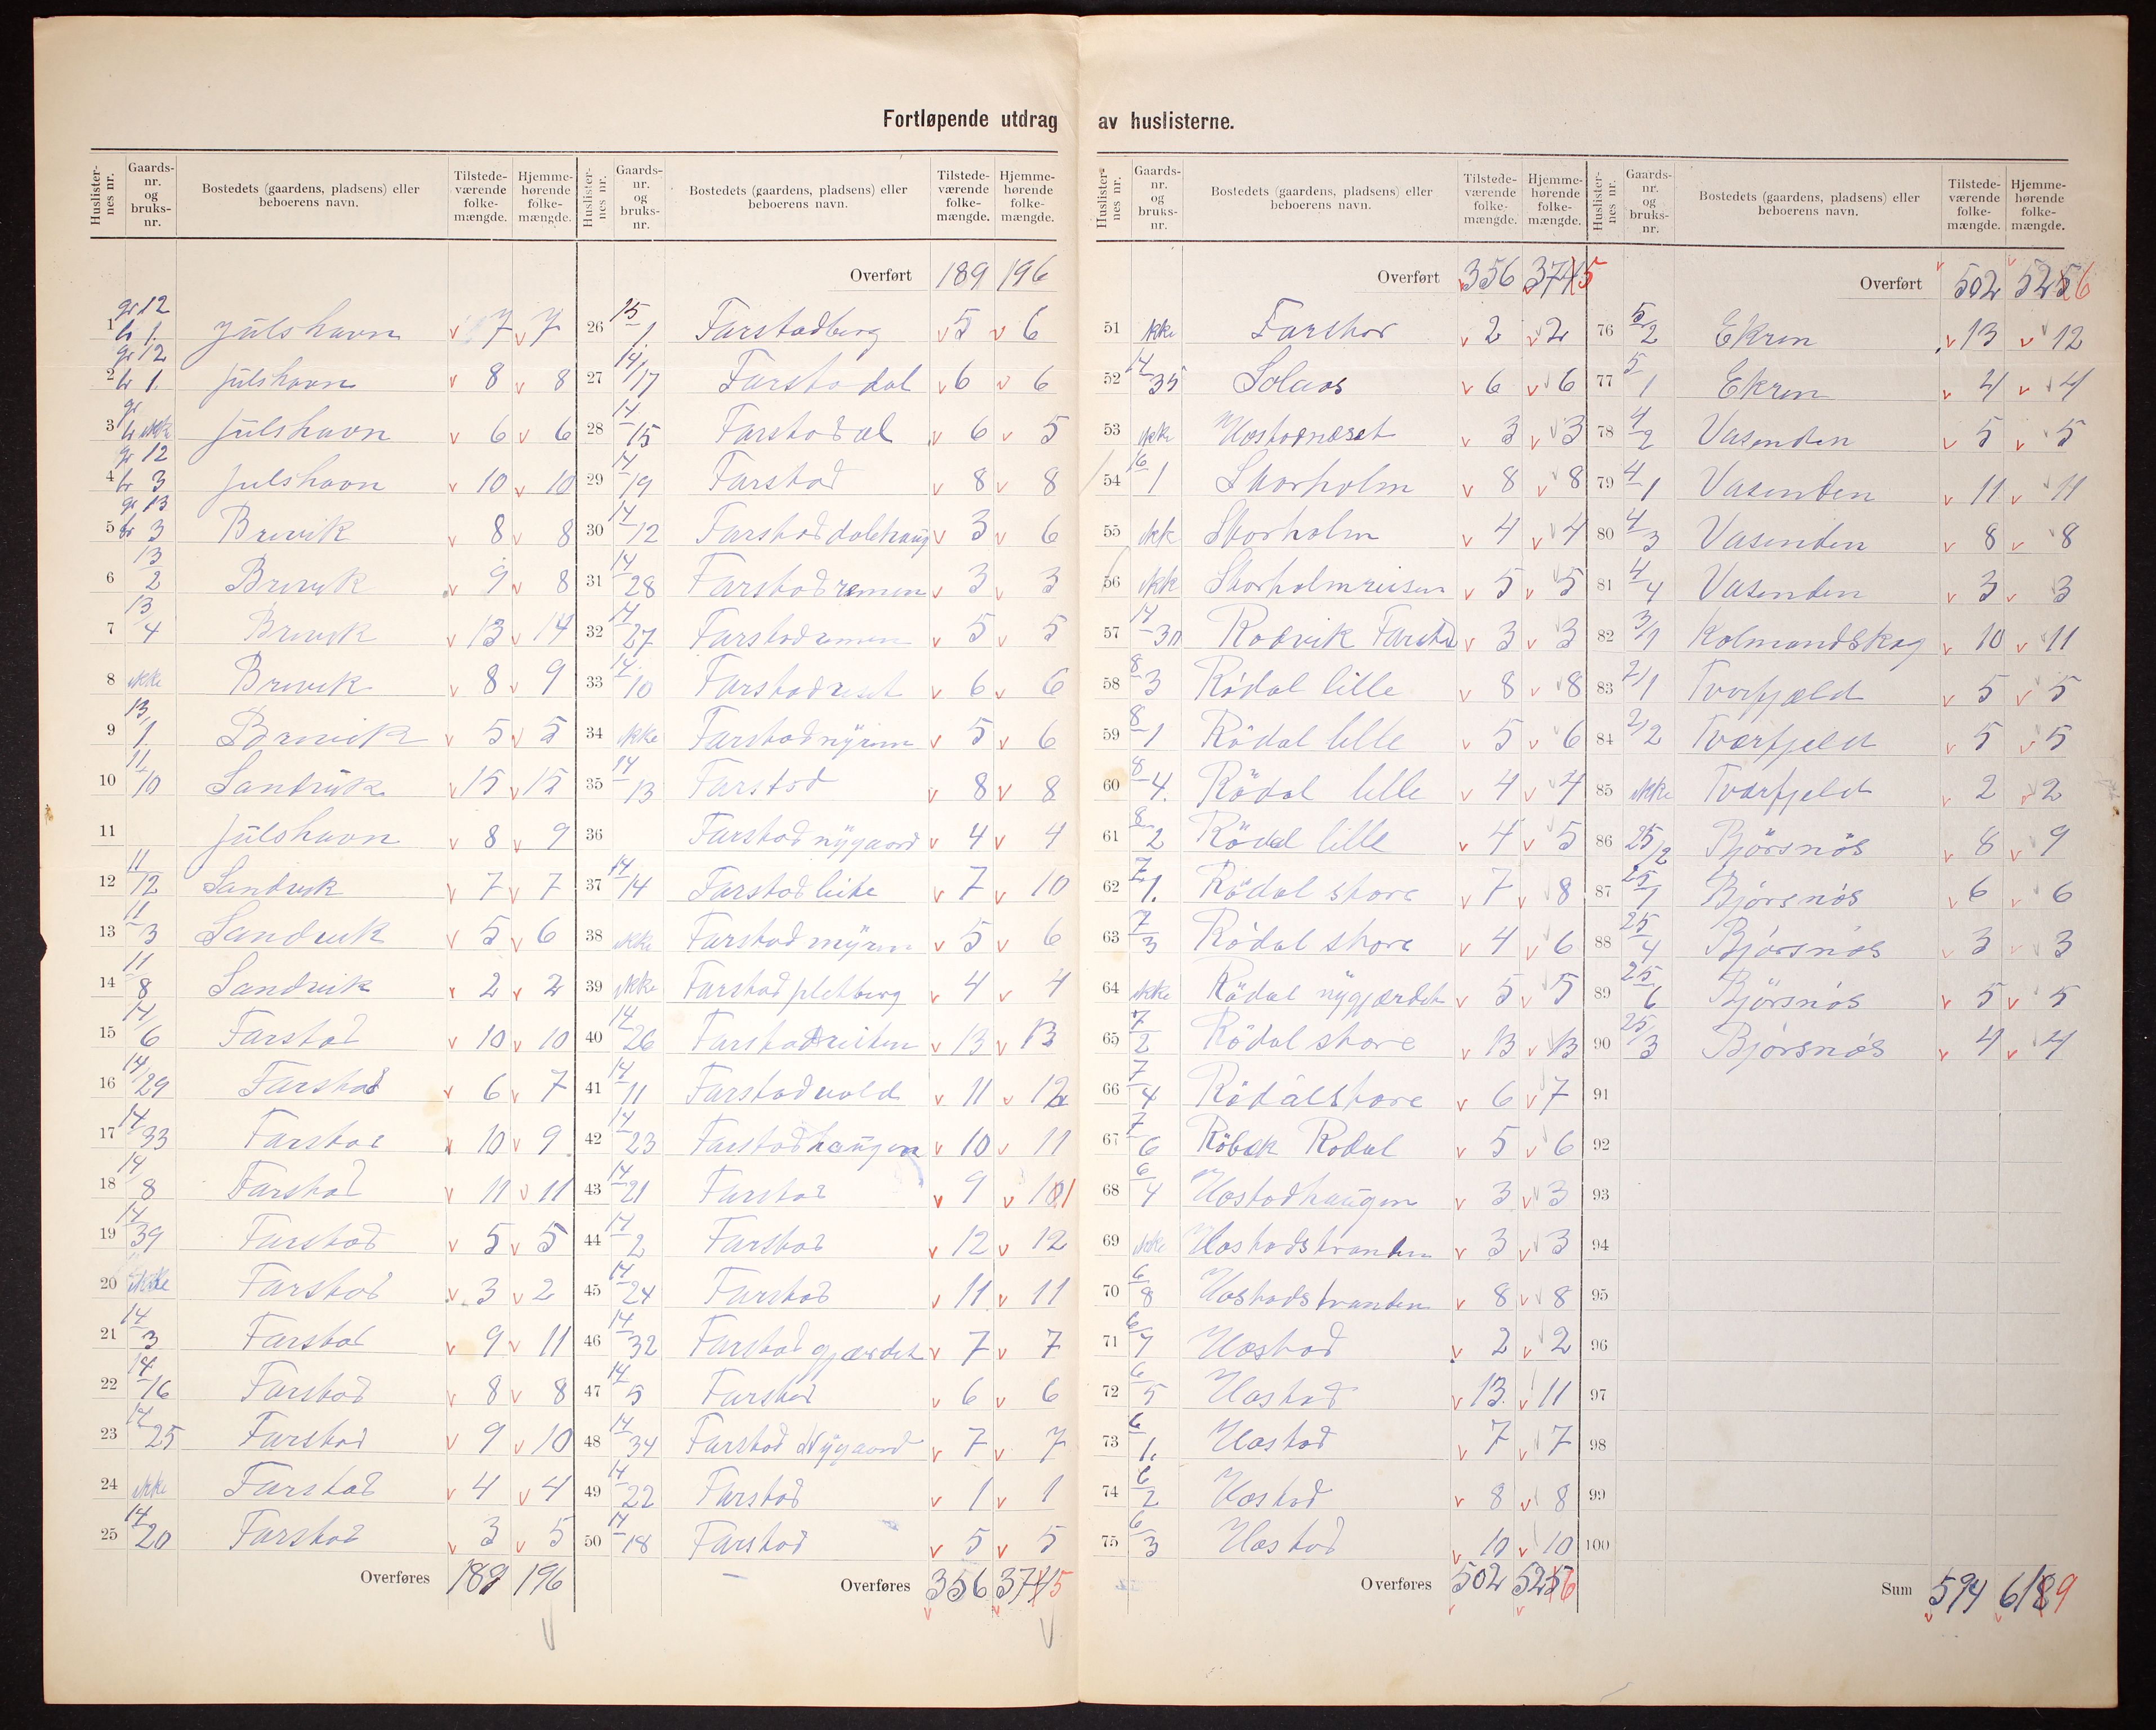 Fortløpende utdrag av huslisterne.
Huslister- nes nr. Gaards- nr. og bruks- nr. Bostedets (gaardens, pladsens) eller beboerens navn. Tilstede- værende folke- mængde. Hjemme- hørende folke- mængde.
1 gr 12 br 1. Julshavn 7 7
2 gr 12 br 1. Julshavn 8 8
3 gr br ikke Julshavn 6 6
4 gr 12 br 3 Julshavn 10 10
5 gr 13 br 3 Brevik 8 8
6 13/2 Brevik 9 8
7 13/4 Brevik 13 14
8 ikke Brevik 8 9
9 13/1 Brevik 5 5
10 11/10 Sandvik 15 15
11 Julshavn 8 9
12 11/12 Sandvik 7 7
13 11/3 Sandvik 5 6
14 11/8 Sandvik 2 2
15 14/6 Farstad 10 10
16 14/29 Farstad 6 7
17 14/33 Farstad 10 9
18 14/8 Farstad 11 11
19 14/39 Farstad 5 5
20 ikke Farstad 3 2
21 14/3 Farstad 9 11
22 14/16 Farstad 8 8
23 14/25 Farstad 9 10
24 ikke Farstad 4 4
25 14/20 Farstad 3 5
Overføres 189 196
Huslister- nes nr. Gaards- nr. og bruks- nr. Bostedets (gaardens, pladsens) eller beboerens navn. Tilstede- værende folke- mængde. Hjemme- hørende folke- mængde.
Overført 189 196
26 15/1. Farstadberg 5 6
27 14/17 Farstadal 6 6
28 14/15 Farstadal 6 5
29 14/19 Farstad 8 8
30 14/12 Farstaddalehaug 3 6
31 14/28 Farstadremen 3 3
32 14/27 Farstadremen 5 5
33 14/10 Farstadreset 6 6
34 ikke Farstadmyren 5 6
35 14/13 Farstad 8 8
36 Farstadnygaard 4 4
37 14/14 Farstadleite 7 10
38 ikke Farstadmyren 5 6
39 ikke Farstadpletberg 4 4
40 14/26 Farstad 13 13
41 14/11 Farstadvold 11 12
42 14/23 Farstadhaugen 10 11
43 14/21 Farstad 9 101
44 14/2 Farstad 12 12
45 14/24 Farstad 11 11
46 14/32 Farstadgjærdet 7 7
47 14/5 Farstad 6 6
48 14/34 Farstad Nygaard 7 7
49 14/22 Farstad 1 1
50 14/18 Farstad 5 5
Overføres 356 3745
Huslister- nes nr. Gaards- nr. og bruks- nr. Bostedets (gaardens, pladsens) eller beboerens navn. Tilstede- værende folke- mængde. Hjemme- hørende folke- mængde.
Overført 356 3745
51 ikke Farstad 2 2
52 14/35 Solaas 6 6
53 ikke Hostadneset 3 3
54 16/1 Storholm 8 8
55 ikke Storholm 4 4
56 ikke 5 5
57 14/30 Farstad 3 3
58 8/3 Rödal lille 8 8
59 8/1 Rödal lille 5 6
60 8/4. Rödal lille 4 4
61 8/2 Rödal lille 4 5
62 7/1. Rödal store 7 8
63 7/3 Rödal store 4 6
64 ikke Rödal nygjærdet 5 5
65 7/2 Rödal store 13 13
66 7/4 Rödal store 6 7
67 7/6 Röbek Rødal 5 6
68 6/4 Hostadhaugen 3 3
69 ikke Hostadstranden 3 3
70 6/8 Hostadstranden 8 8
71 6/7 Hostad 2 2
72 6/5 Hostad 13 11
73 6/1. Hostad 7 7
74 6/2 Hostad 8 8
75 6/3 Hostad 10 10
Overføres 502 5256
Huslister- nes nr. Gaards- nr. og bruks- nr. Bostedets (gaardens, pladsens) eller beboerens navn. Tilstede- værende folke- mængde. Hjemme- hørende folke- mængde.
Overført 502 5256
76 5/2 Ekren 13 12
77 5/1 Ekren 4 4
78 4/2 Vasenden 5 5
79 4/1 Vasenden 11 11
80 4/3 Vasenden 8 8
81 4/4 Vasenden 3 3
82 3/1 Kolmandskog 10 11
83 2/1 Tverfjeld 5 5
84 2/2 Tverfjeld 5 5
85 ikke Tverfjeld 2 2
86 25/2 Björsnös 8 9
87 25/1 Björsnös 6 6
88 25/4 Björsnös 3 3
89 25/6 Björsnös 5 5
90 25/3 Björsnös 4 4
91
92
93
94
95
96
97
98
99
100
Sum 594 6189